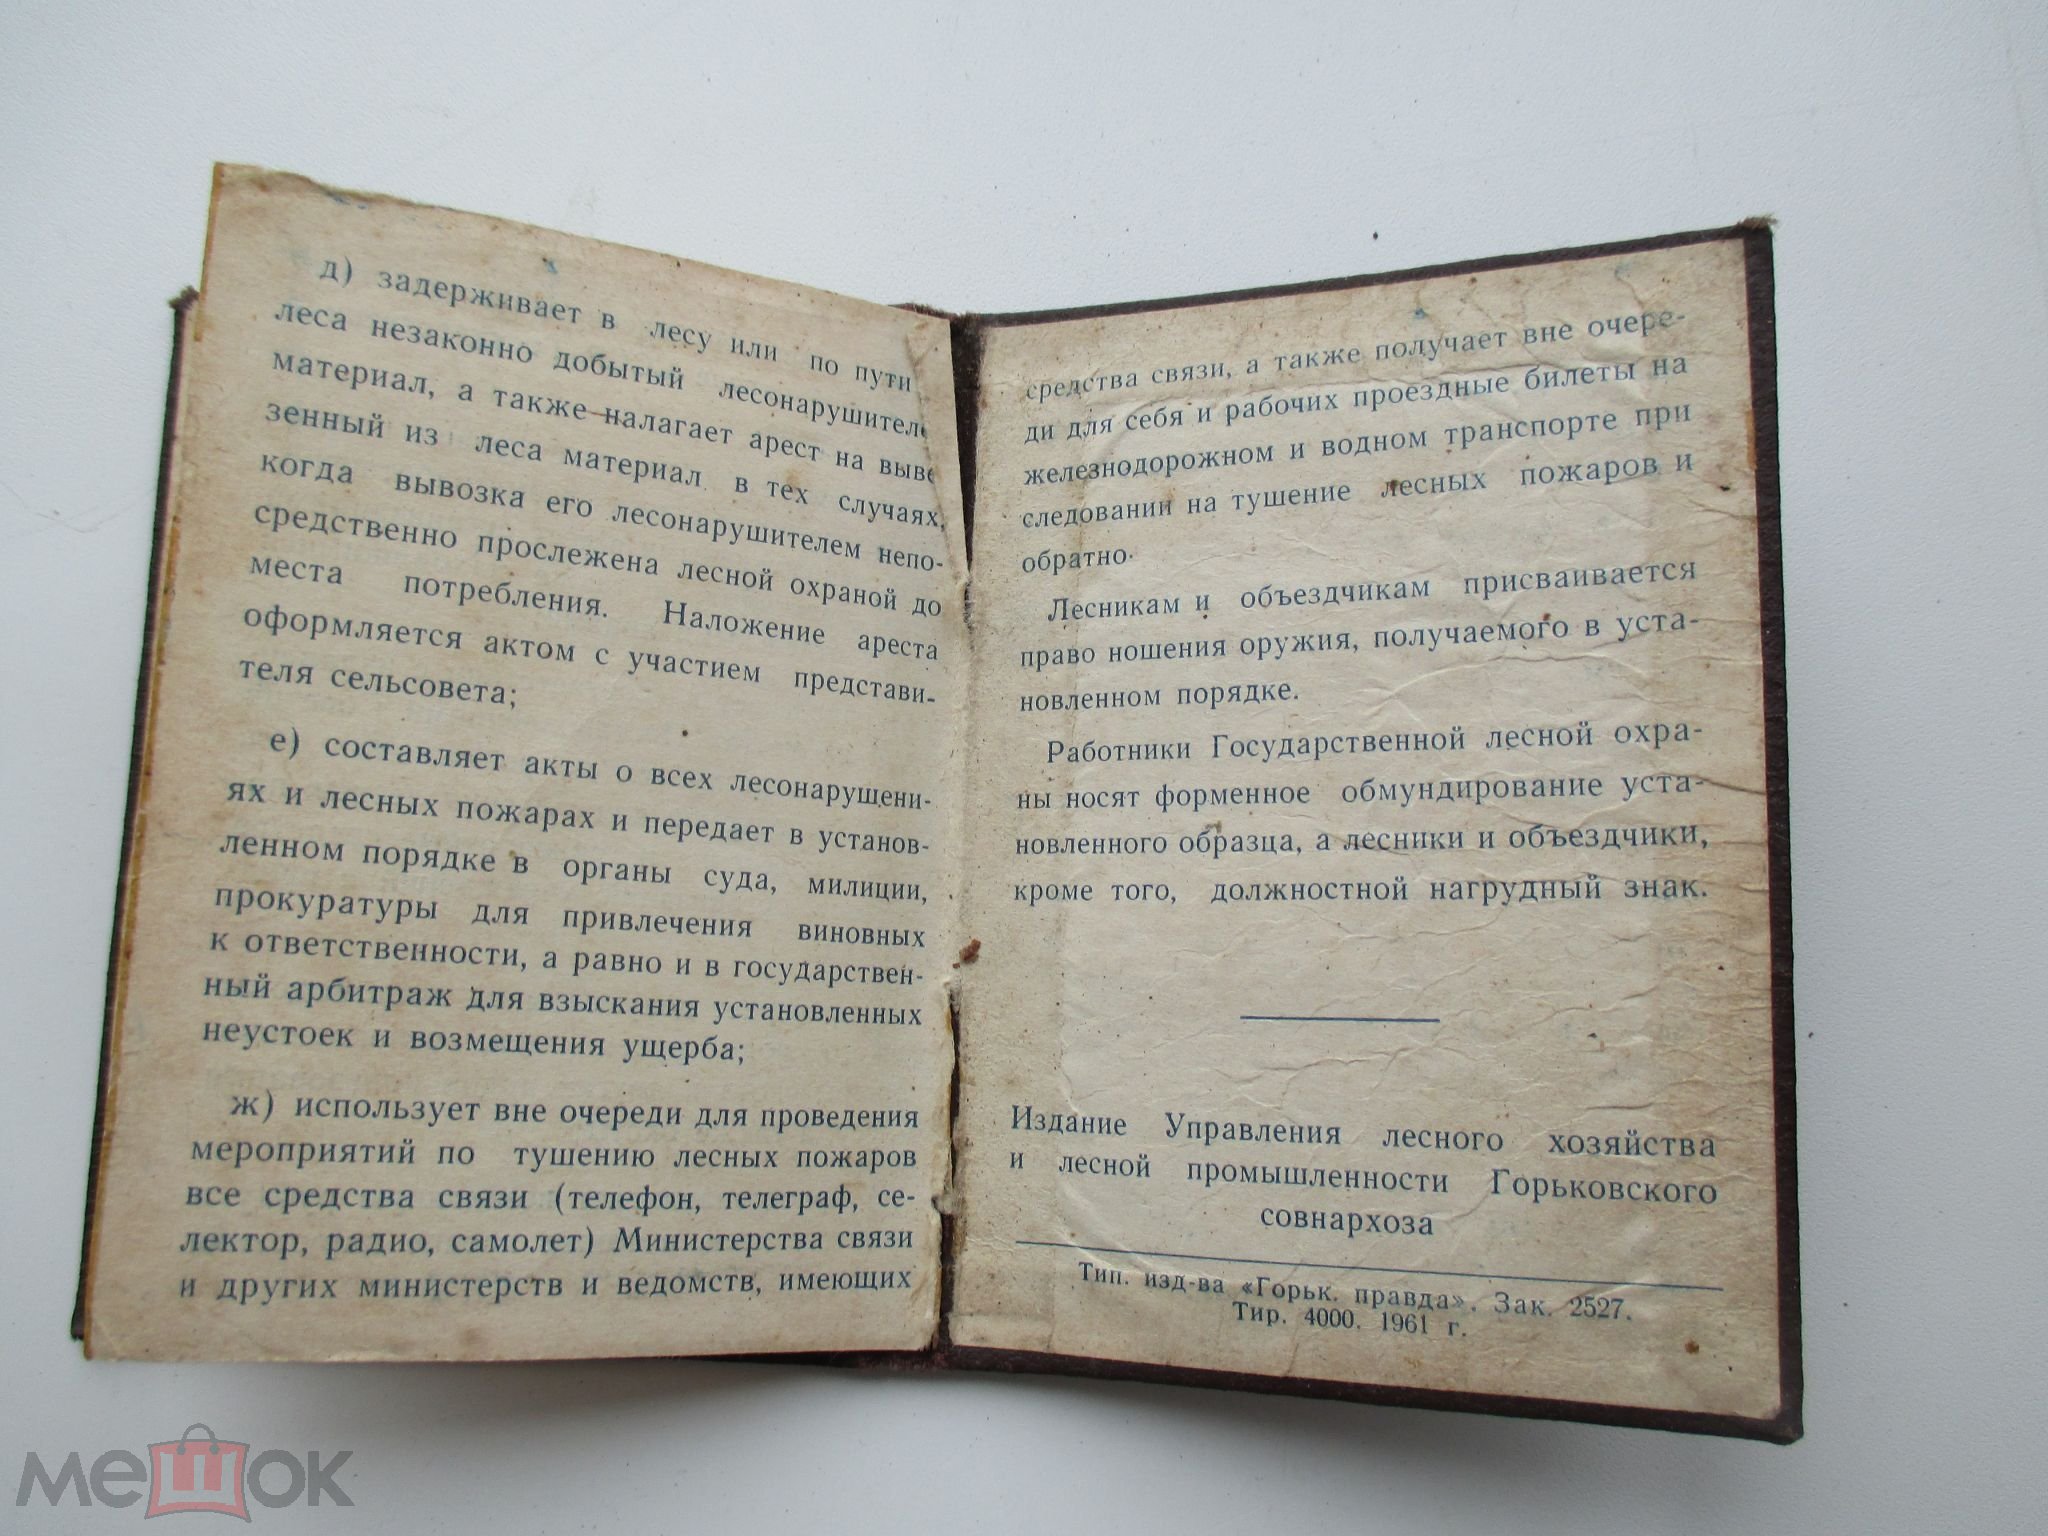 д) задерживает в лесу или по пути
леса незаконно добытый лесонарушител
материал, а также налагает арест на выве
зенный из леса материал в тех случаях,
когда вывозка его лесонарушителем непо-
средственно прослежена лесной охраной до
места потребления. Наложение ареста
оформляется актом с участием представи-
теля сельсовета;
е) составляет акты о всех лесонарушени-
ях и лесных пожарах и передает в установ-
ленном порядке в органы суда, милиции,
прокуратуры для привлечения виновных
к ответственности, а равно и в государствен-
ный арбитраж для взыскания установленных
неустоек и возмещения ущерба;
ж) использует вне очереди для проведения
мероприятий по тушению лесных пожаров
все средства связи (телефон, телеграф, се-
лектор, радио, самолет) Министерства связи
и других министерств и ведомств, имеющих
средства связи, а также получает вне очере-
ди для себя и рабочих проездные билеты на
железнодорожном и водном транспорте при
следовании на тушение лесных пожаров и
обратно.
Лесникам и объездчикам присваивается
право ношения оружия, получаемого в уста-
новленном порядке.
Работники Государственной лесной охра-
ны носят форменное обмундирование уста-
новленного образца, а лесники и объездчики,
кроме того, должностной нагрудный знак.
Издание Управления лесного хозяйства
и лесной промышленности Горьковского
совнархоза
Тип. изд-ва «Горьк. правда». Зак. 2527.
Тир. 4000. 1961 г.
мешок